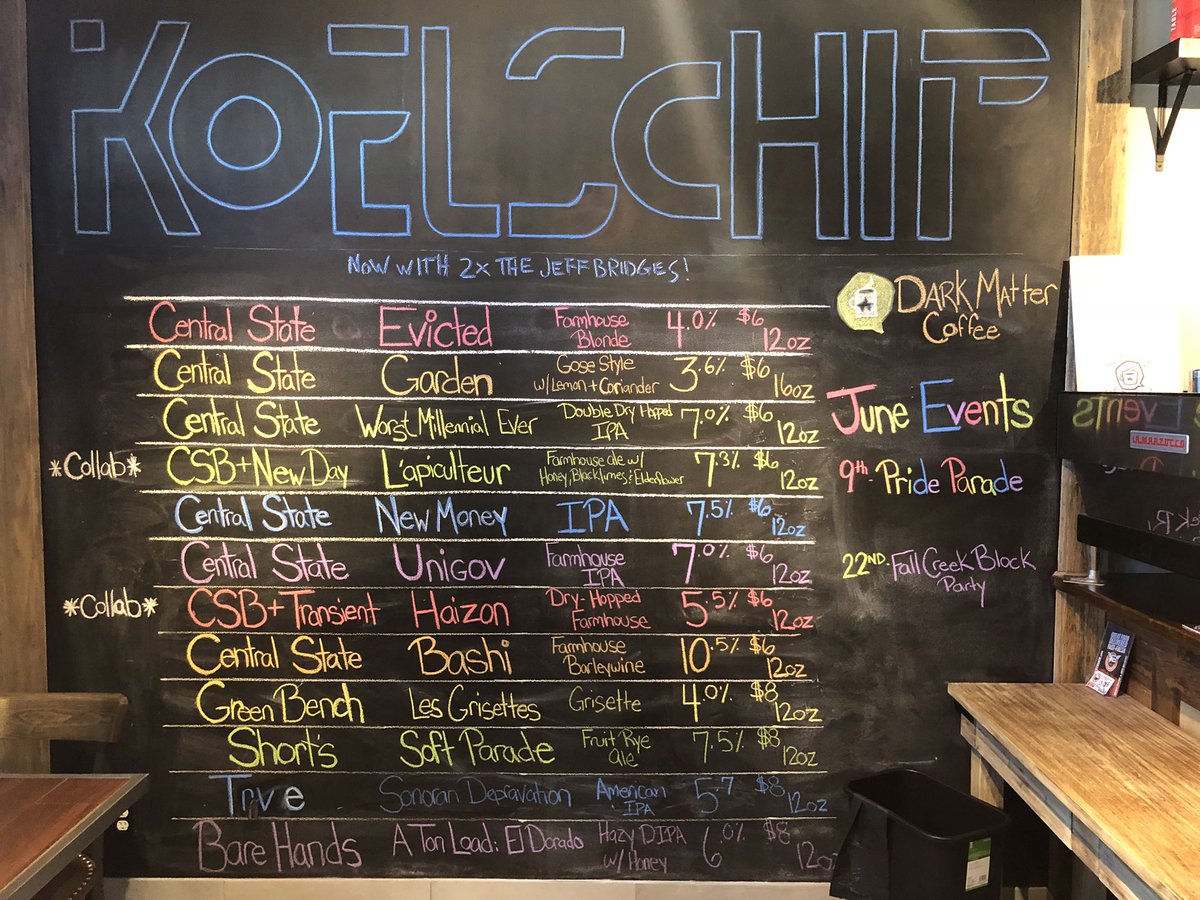 KOELSCHIP
NOW WITH 2X THE JEFF BRIDGES!
Central State Evicted Farmhouse Blonde 4.0% $6 12oz
Central State Garden Gose Style w/ Lemon + Coriander 3.6% $6 16oz
Central State Worst Millennial Ever Double Dry Hopped IPA 7.0% $6 12oz
*Collab* CSB+New Day L'apiculteur Farmhouse ale w/ Honey, Black limes, & Elderflower 7.3% $6 12oz
Central State New Money IPA 7.5% $6 12oz
Central State Unigov Farmhouse IPA 7.0% $6 12oz
*Collab* CSB+Transient Haizon Dry-Hopped Farmhouse 5.5% $6 12oz
Central State Bashi Farmhouse Barleywine 10.5% $6 12oz
Green Bench Les Grisettes Grisette 4.0% $8 12oz
Short's Soft Parade Fruit Rye Ale 7.5% $8 12oz
Trve Sonoran Depravation American IPA 5.7 $8 12oz
Bare Hands A Ton Load: El Dorado Hazy DIPA w/ Honey 6.0% $8 12oz
DARK MATTER
Coffee
June Events
9th. Pride Parade
22ND. Fall Creek Block
Party